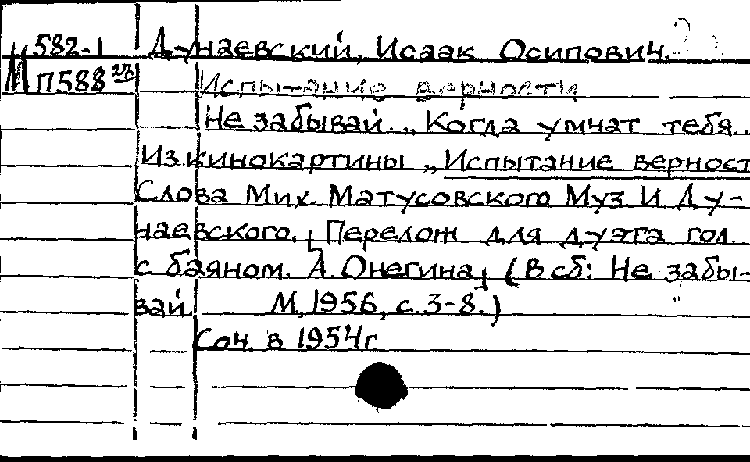 582-1 Дунаевский, Исаак Осипович.
М П588 Испытание верности
Не забывай. „Когда умчат тебя..
Из кинокартины „Испытание верност
Слова Мих. Матусовского Муз И Ду-
наевского. Перелож для дуэта гол.
с баяном. А. Онегина, (В сб: Не забы-
вай М, 1956, с. 3-8.)
Соч. в 1954г